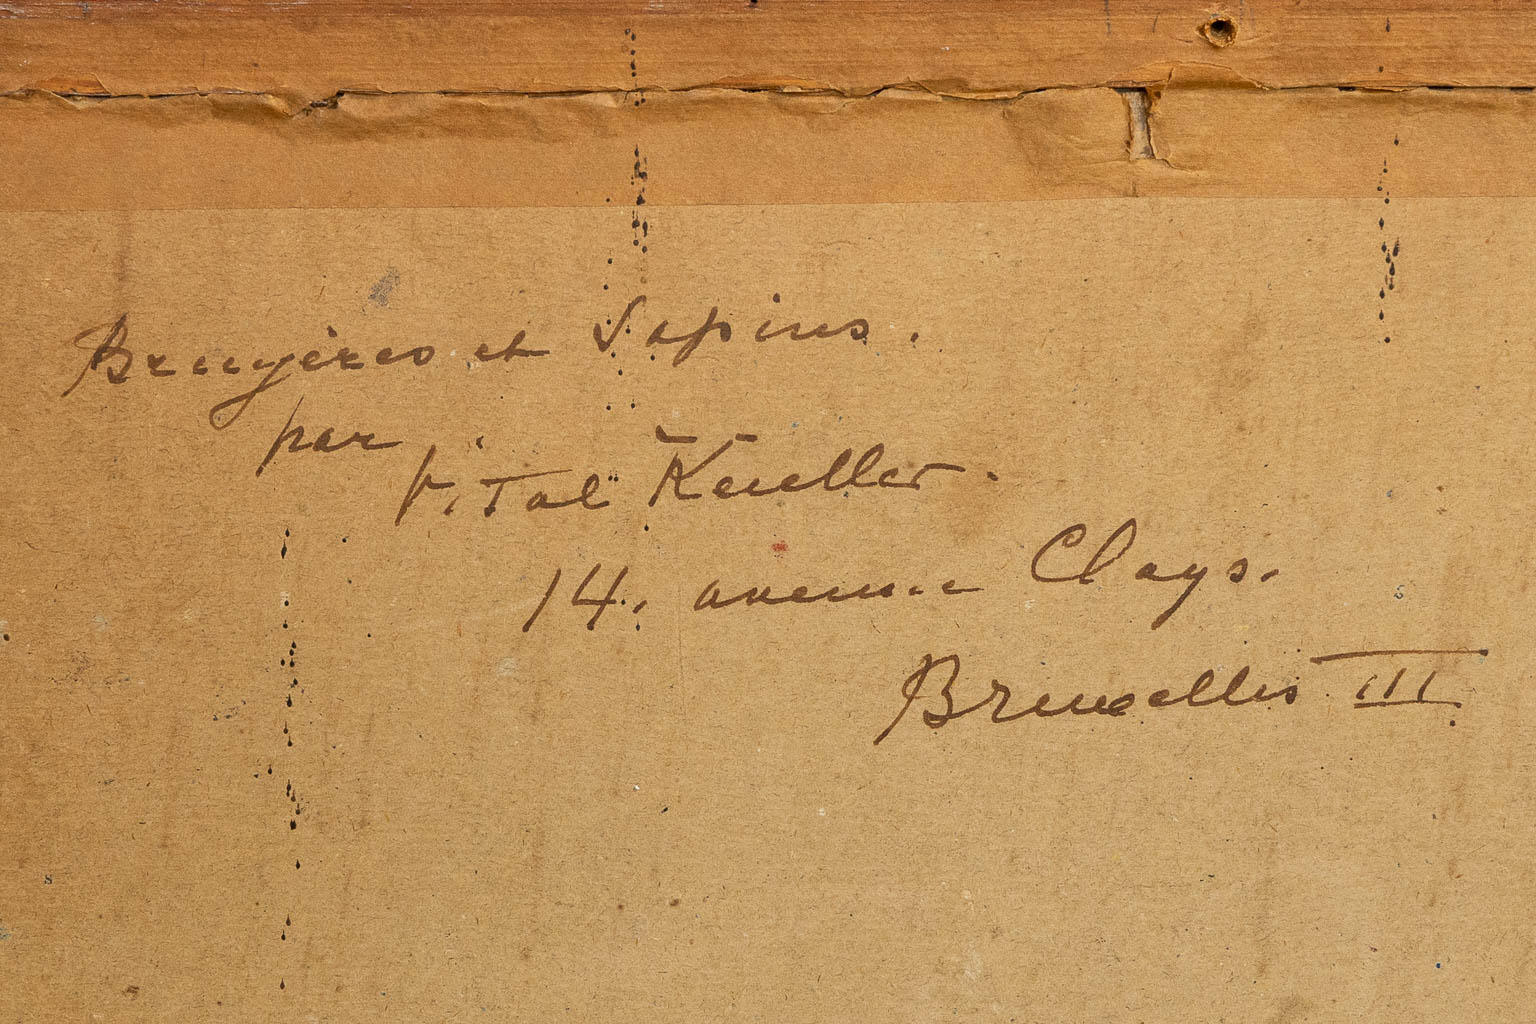 Bruyères et Sapins.
par
Vital Keuller.
14, avenue Clays.
Bruxelles III